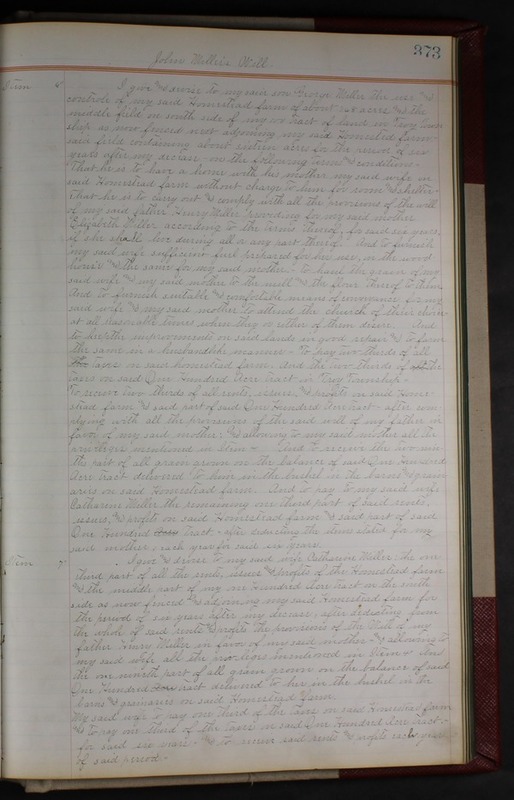 373
John Miller's Will
Item 6" I give & devise to my said son George Miller the use &
controle of my said Homestead farm of about 158 acres & the
middle field on south side of my 100 tract of land in Troy Town
ship as now fenced next adjoining my said Homestead farm
said field containing about sixteen acres for the period of six
years after my decease on the following terms & conditions.
That he is to have a home with his mother my said wife in
said Homestead farm without charge to him for room & shelter.
That he is to carry out & comply with all the provisions of the will
of my said father Henry Miller providing for my said mother
Elizabeth Miller according to the terms thereof, for said six years,
if she shall live during all or any part thereof. And to furnish
my said wife sufficient fuel prepared for her use, in the wood
house & the same for my said mother. To haul the grain of my
said wife & my said mother to the mill & the flour thereof to them
And to furnish suitable & comfortable means of conveyance for my
said wife & my said mother to attend the church of their choice
at all reasonable times when they or either of them desire. And
to keep the improvements on said lands in good repair & to farm
the same in a husbandlike manner. To pay two thirds of all
the taxes on said homestead farm. And the two thirds of all the
taxes on said One Hundred Acre Tract in Troy Township.
To receive two thirds of all rents, issues, & profits in said Home-
stead farm & said part of said One Hundred Acre tract. after com-
plying with all the provisions of the said will of my father in
favor of my said mother, & allowing to my said mother all the
privileges mentioned in Item And to receive the two nin
ths part of all grain grown on the balance of said One Hundred
Acre Tract delivered to him in the bushel in the barns & gran
aries on said Homestead farm. And to pay to my said wife
Catharine Miller the remaining one third part of said rents,
issues, & profits on said Homestead farm & said part of said
One Hundred Acre tract - after deducting the items stated for my
said mother, each year for said six years.
Item 7" I give & devise to my said wife Catharine Miller, the one
third part of all the rents, issues & profits of the Homestead farm
& the middle part of my One Hundred Acre tract on the south
side as now fenced & adjoining my said Homestead farm for
the period of six years after my decease, after deducting from
the whole of said rents & profits the provisions of the Will of my
father Henry Miller in favor of my said mother & allowing to
my said wife all the privileges mentioned in Item And
the one ninth part of all grain grown on the balance of said
One Hundred Acre tract delivered to her in the bushel in the
barns & granaries on said Homestead Farm.
My said wife to pay one third of the taxes on said Homestead farm
& to pay one third of the taxes on said One Hundred Acre tract.
for said six years. & to receive said rents & profits each year
of said period.